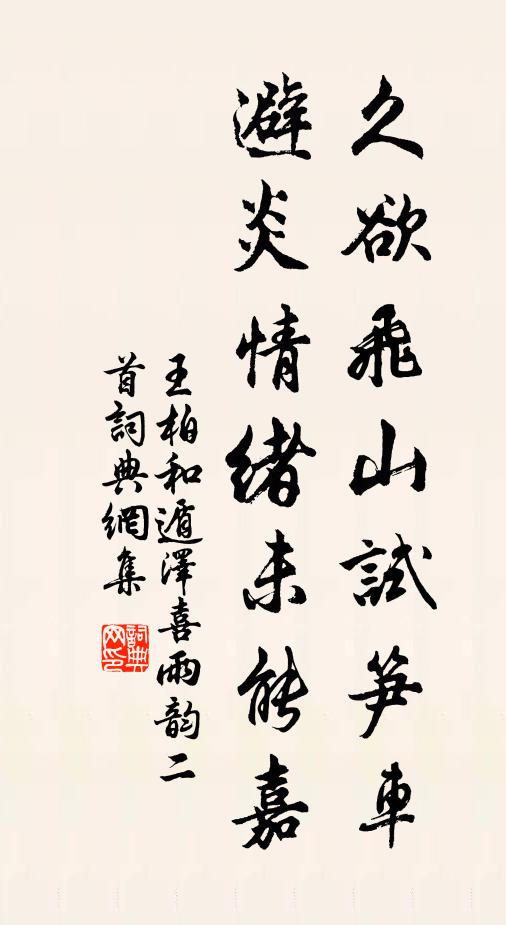 久欲飛山試笋車
避炎情緒未能嘉
王柏和遁澤喜雨韵二
首詞典網集
詞典